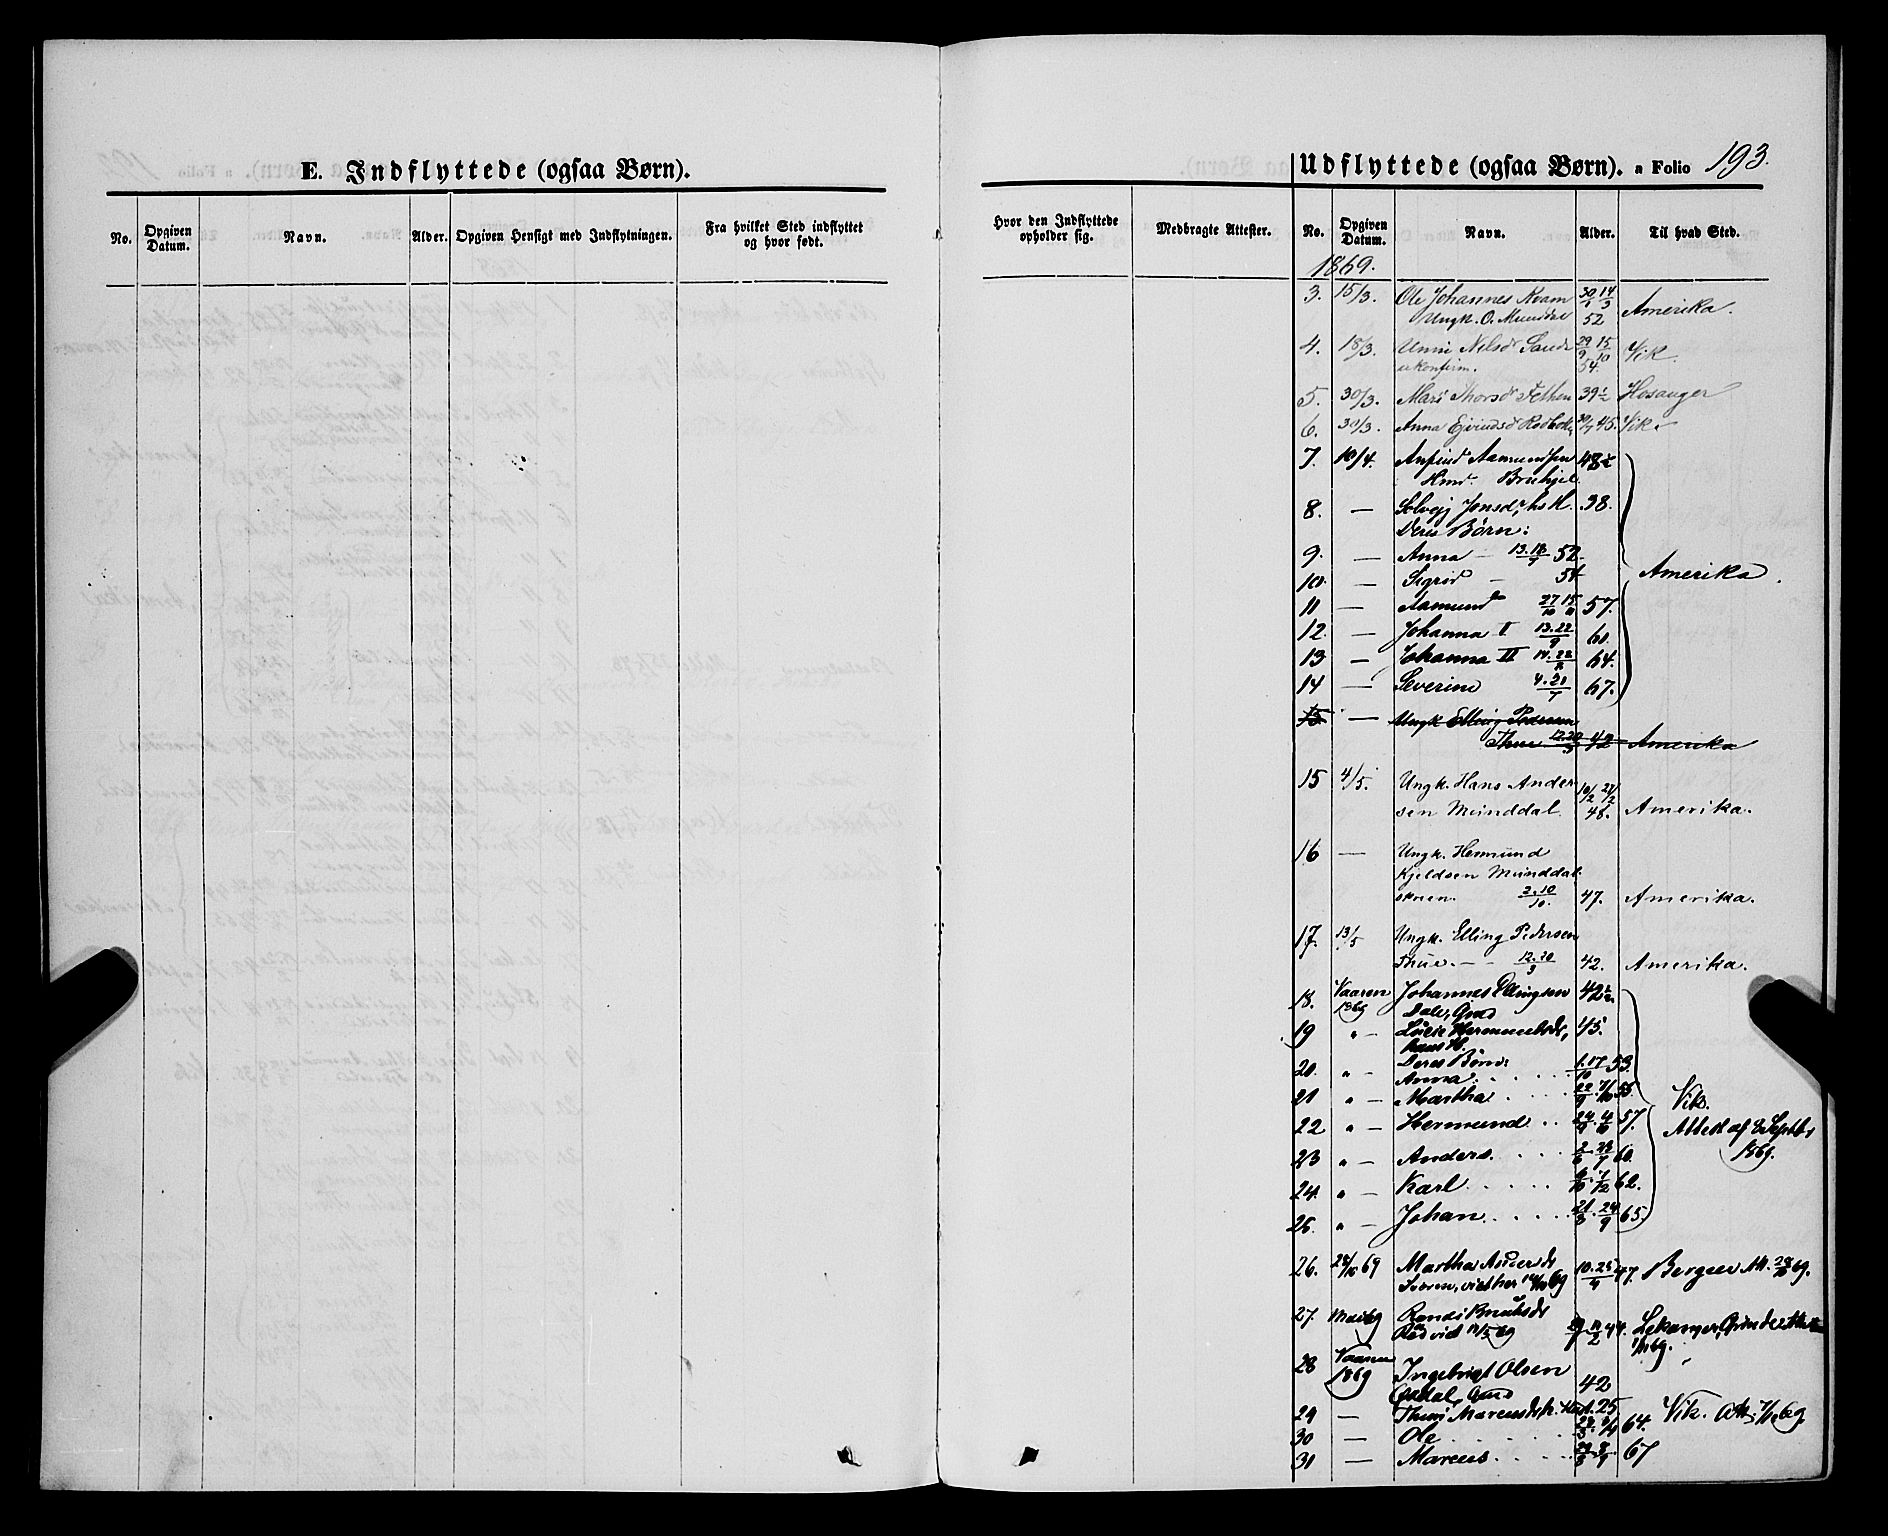 E. Indflyttede (ogsaa Børn).
No. Opgiven Datum. Navn. Alder. Opgiven Hensigt med Indflytningen. Fra hvilket Sted indflyttet og hvor født.
Udflyttede (ogsaa Børn). a Folio 193.
Hvor den Indflyttede opholder sig. Medbragte Attester. No. Opgiven Datum. Navn. Alder. Til hvad Sted.
1869.
3. 15/3. Ole Johannes Kvam 30/1 14/3 Amerika.
Ungk. O. Munddal 52
4. 18/3. Unni Nelsdr Sande 29/9 15/10 Vik
ukonfirm. 54.
5. 30/3. Mari Thorsd Fethen 39½ Hosanger
6. 30/3. Anna Ejvindsd 45. Vik.
7. 10/4. Anfind Aamundsen 48½
Hmd.
8. — Solvej Jonsdr, hs K. 38.
Deres Børn:
9. — Anna — 52.
10. — Sigrid — 54 Amerika.
11 — Aamund 27/10 15/11 57.
12. — Johanna I 13.22/9 60.
13 — Johanna II 64.
14 — Severine 67.
15. — Ungk Elling Pedersen
Thue 12.20/3 42 Amerika
15 4/5. Ungk. Hans Ander
sen Munddal 48. Amerika.
16 — Ungk. Hermund
Kjeldsen Munddal
skreen. 2.10/10. 47. Amerika.
17. 13/5 Ungk. Elling Pedersen
Thue. — 12.20/3 42. Amerika.
18. Vaaren 1869 Johannes Ellingsen 42½
Dale, Gmd
19 " — Lucie Hermundsdr, 45.
hans H.
20. " — Deres Børn:
Anna. 1.17/10 53.
21 " — Martha 55.
22 " — Hermund 57. Vik.
Attest af 8 Septbr
23 " — Anders. 60. 1869.
24. " — Karl 62.
25. " — Johan 65.
26. 28/10 69 Martha Andersdr 10.25/4 47. Bergen Att. 28/10 69.
27. Mai 69 Randi Knutsdr
Rød viet 14/5 69 44. Lekanger,
28 Vaaren 1869 Ingebrigt Olsen
Gmd 42
29 — Thuri Marcusdr. 25 Vik. Att. 7/11 69
30 — Ole 64.
31 — Marcus 67